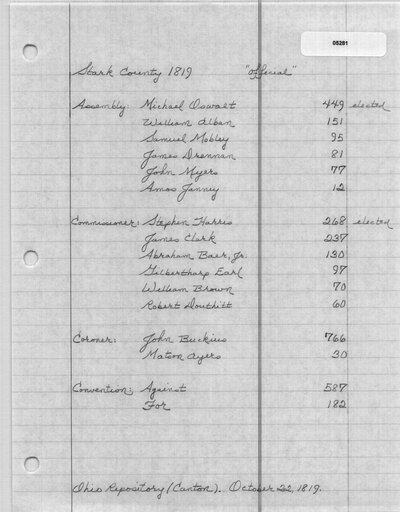 05281
Stark County 1819 "official"
Assembly: Michael Oswalt 449 elected
William Alban 151
Samuel Mobley 95
James Drennan 81
John Myers 77
Amos Janney 12
Commissioner: Stephen Harris 268 elected
James Clark 237
Abraham Baer, Jr. 130
Gilberthorp Earl 97
William Brown 70
Robert Douthitt 60
Coroner: John Buckius 766
Matson Ayers 30
Convention: Against 587
For 182
Ohio Repository (Canton). October 22, 1819.